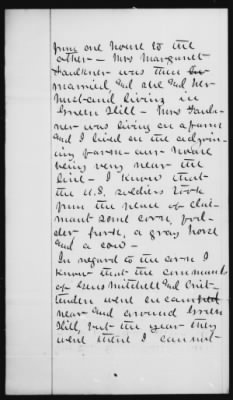 from one house to the
other – Mrs Margaret
Faulkner was then
married, and she and her
husband living in
Green Hill – Mrs Faulk-
ner was living on a farm
and I lived on the adjoin-
ing farm – our house
being very near the
line – I know that
the U.S. soldiers took
from the place of clai-
mant some corn, fod-
der, pork, a gray horse
and a cow –
In regard to the corn I
know that the commands
of Genls Mitchell and Crit-
tenden went in camp
near and around Green
Hill, but the year they
went there I cannot